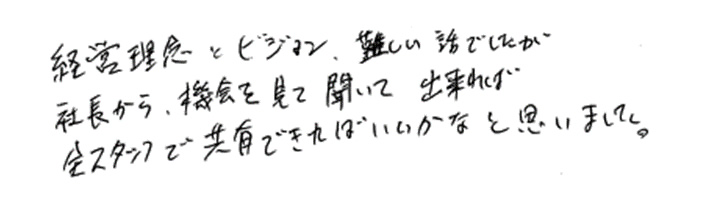 経営理念とビジョン、難しい話でしたが
社長から、機会を見て聞いて 出来れば
全スタッフで共有できればいいかなと思いました。